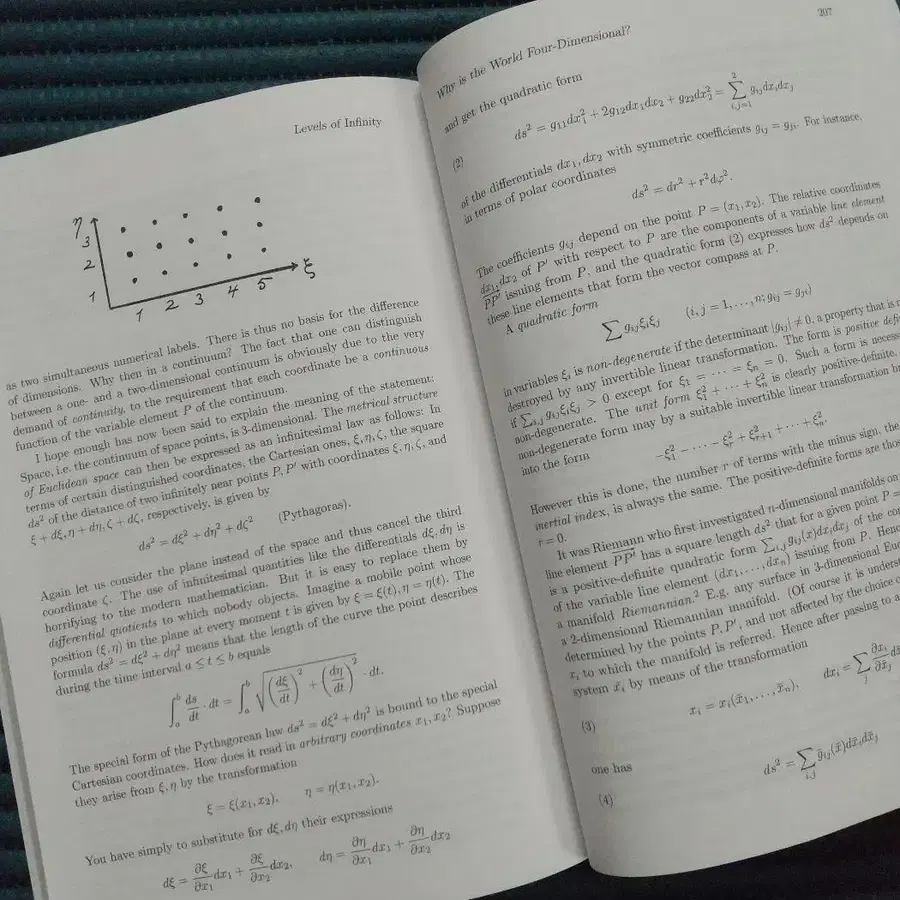 Levels of Infinity
η
3
2
1
1 2 3 4 5 ξ
as two simultaneous numerical labels. There is thus no basis for the difference
of dimensions. Why then in a continuum? The fact that one can distinguish
between a one- and a two-dimensional continuum is obviously due to the very
demand of continuity, to the requirement that each coordinate be a continuous
function of the variable element P of the continuum.
I hope enough has now been said to explain the meaning of the statement:
Space, i.e. the continuum of space points, is 3-dimensional. The metrical structure
of Euclidean space can then be expressed as an infinitesimal law as follows: In
terms of certain distinguished coordinates, the Cartesian ones, ξ, η, ζ, the square
ds² of the distance of two infinitely near points P, P′ with coordinates ξ, η, ζ, and
ξ + dξ, η + dη, ζ + dζ, respectively, is given by
ds² = dξ² + dη² + dζ² (Pythagoras).
Again let us consider the plane instead of the space and thus cancel the third
coordinate ζ. The use of infinitesimal quantities like the differentials dξ, dη is
horrifying to the modern mathematician. But it is easy to replace them by
differential quotients to which nobody objects. Imagine a mobile point whose
position (ξ, η) in the plane at every moment t is given by ξ = ξ(t), η = η(t). The
formula ds² = dξ² + dη² means that the length of the curve the point describes
during the time interval a ≤ t ≤ b equals
∫ₐᵇ ds/dt · dt = ∫ₐᵇ √((dξ/dt)² + (dη/dt)²) · dt.
The special form of the Pythagorean law ds² = dξ² + dη² is bound to the special
Cartesian coordinates. How does it read in arbitrary coordinates x₁, x₂? Suppose
they arise from ξ, η by the transformation
ξ = ξ(x₁, x₂), η = η(x₁, x₂).
You have simply to substitute for dξ, dη their expressions
dξ = ∂ξ/∂x₁ dx₁ + ∂ξ/∂x₂ dx₂, dη = ∂η/∂x₁ dx₁ + ∂η/∂x₂ dx₂
Why is the World Four-Dimensional? 207
and get the quadratic form
(2) ds² = g₁₁dx₁² + 2g₁₂dx₁dx₂ + g₂₂dx₂² = ∑²ᵢ,ⱼ₌₁ gᵢⱼdxᵢdxⱼ
of the differentials dx₁, dx₂ with symmetric coefficients gᵢⱼ = gⱼᵢ. For instance,
in terms of polar coordinates
ds² = dr² + r²dφ².
The coefficients gᵢⱼ depend on the point P = (x₁, x₂). The relative coordinates
dx₁, dx₂ of P′ with respect to P are the components of a variable line element
PP′ issuing from P, and the quadratic form (2) expresses how ds² depends on
these line elements that form the vector compass at P.
A quadratic form
∑ gᵢⱼξᵢξⱼ (i, j = 1, . . . , n; gᵢⱼ = gⱼᵢ)
in variables ξᵢ is non-degenerate if the determinant |gᵢⱼ| ≠ 0, a property that is
destroyed by any invertible linear transformation. The form is positive
if ∑ᵢ,ⱼ gᵢⱼξᵢξⱼ > 0 except for ξ₁ = · · · = ξₙ = 0. Such a form is
non-degenerate. The unit form ξ₁² + · · · + ξₙ² is clearly positive-definite.
non-degenerate form may by a suitable invertible linear transformation
into the form
−ξ₁² − · · · − ξᵣ² + ξ²ᵣ₊₁ + · · · + ξₙ².
However this is done, the number r of terms with the minus sign, the
inertial index, is always the same. The positive-definite forms are
r = 0.
It was Riemann who first investigated n-dimensional manifolds on
line element PP′ has a square length ds² that for a given point P =
is a positive-definite quadratic form ∑ᵢ,ⱼ gᵢⱼ(x)dxᵢdxⱼ of the
of the variable line element (dx₁, . . . , dxₙ) issuing from P.
a manifold Riemannian.² E.g. any surface in 3-dimensional
a 2-dimensional Riemannian manifold. (Of course it is
determined by the points P, P′, and not affected by the choice
xᵢ to which the manifold is referred. Hence after passing to a
system x̄ᵢ by means of the transformation
(3) xᵢ = xᵢ(x̄₁, . . . , x̄ₙ), dxᵢ = ∑ⱼ ∂xᵢ/∂x̄ⱼ
one has
(4) ds² = ∑ᵢ,ⱼ ḡᵢⱼ(x̄)dx̄ᵢdx̄ⱼ